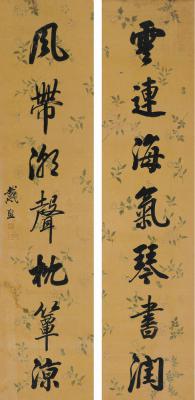 雲連海氣琴書潤
風帶潮聲枕簟涼